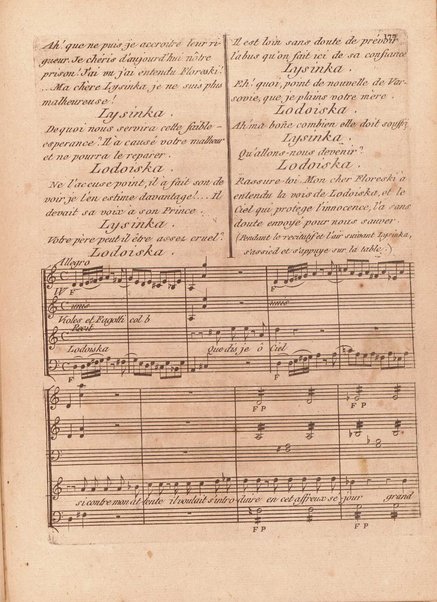 177
Ah! que ne puis je accroitre leur ri-
gueur. Je cheris d'aujourd'hui nôtre
prison! J'ai vu, j'ai entendu Floreski!
...Ma chère Lysinka, je ne suis plus
malheureuse!
Lysinka.
De quoi nous servira cette faible
esperance? Il a causé votre malheur
et ne pourra le reparer.
Lodoiska.
Ne l'accuse point, il a fait son de
voir, je l'en estime davantage!... Il
devait sa voix à son Prince.
Lysinka.
Votre père peut il être assez cruel?
Lodoiska.
Il est loin sans doute de prévoir
l'abus qu'on fait ici de sa confiance
Lysinka.
Eh! quoi, point de nouvelle de Var-
sovie, que je plains votre mère
Lodoiska.
Ah, ma bone combien elle doit souffrir
Lysinka.
Qu'allons-nous devenir?
Lodoiska.
Rassure-toi. Mon cher Floreski a
entendu la voix de Lodoiska, et le
Ciel qui protege l'innocence, l'a sans
doute envoyé pour nous sauver.
(Pendant le recitatif et l'air suivant Lysinka,
s'assied et s'appuye sur la table.)
Allegro
F
unis
unis
Violes et Fagotti col b
Recit
Lodoiska
Que dis je ô Ciel
F
F
F P
F P
si contre mon attente il voulait s'introduire en cet affreux sejour
grand
F P
F P